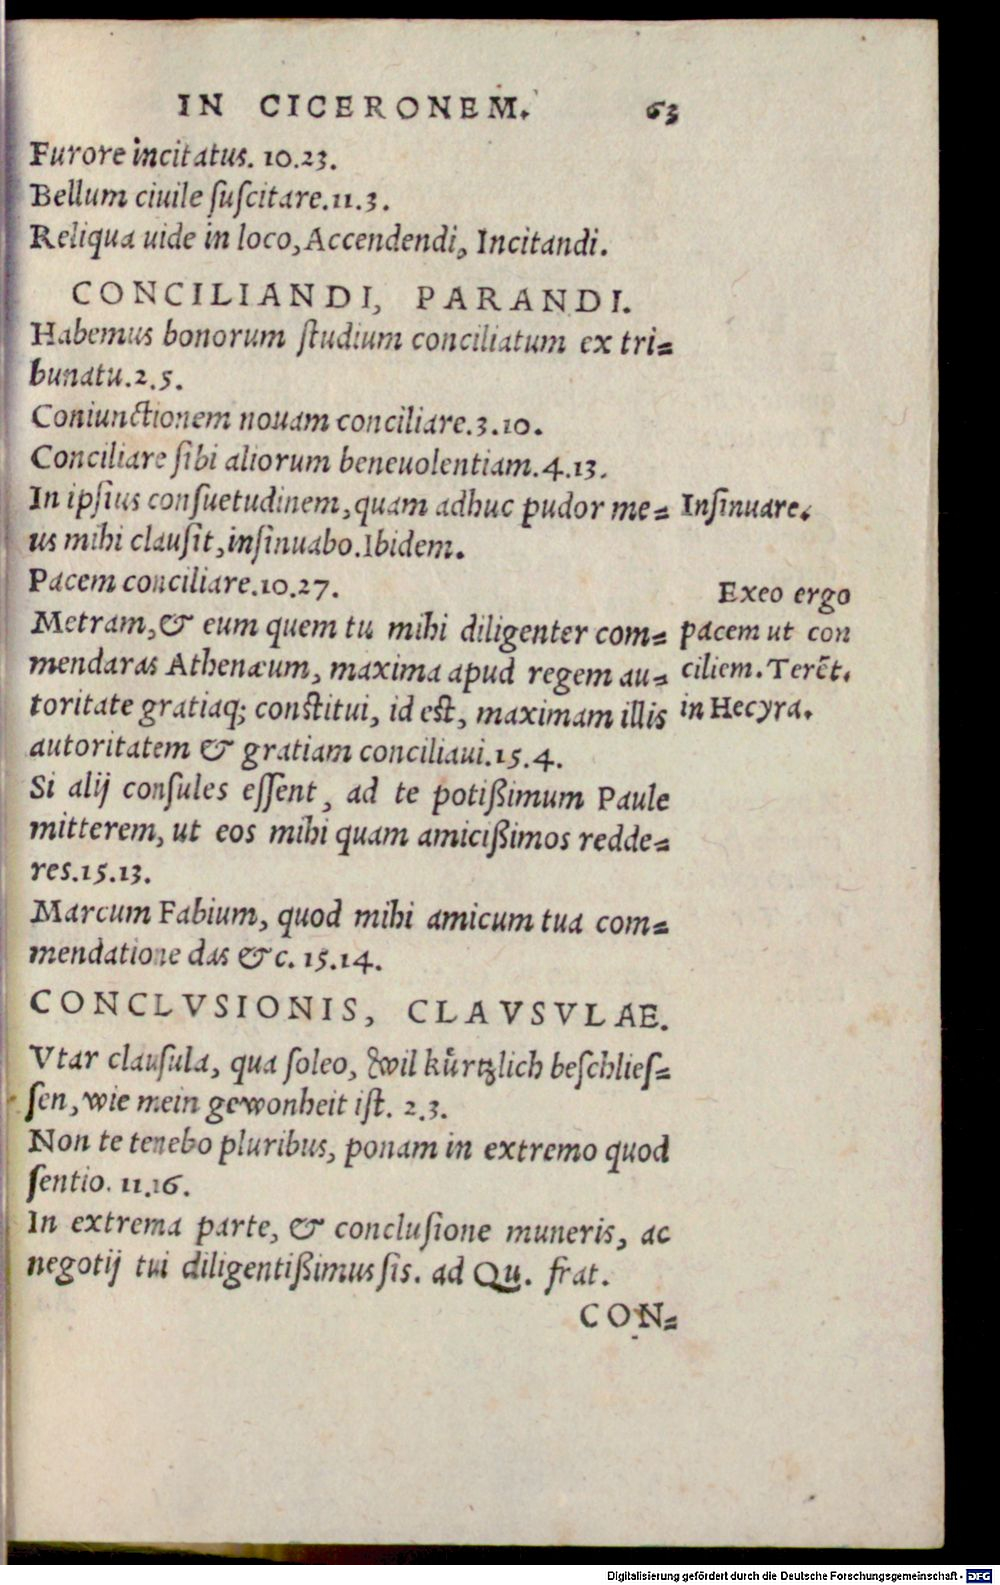 IN CICERONEM. 63
Furore incitatus. 10.23.
Bellum ciuile ſuſcitare.11.3.
Reliqua uide in loco, Accendendi, Incitandi.
CONCILIANDI, PARANDI.
Habemus bonorum ſtudium conciliatum ex tri⸗
bunatu.2.5.
Coniunctionem nouam conciliare.3.10.
Conciliare ſibi aliorum beneuolentiam.4.13.
In ipſius conſuetudinem, quam adhuc pudor me⸗
us mihi clauſit, inſinuabo. Ibidem.
Pacem conciliare.10.27.
Metram, & eum quem tu mihi diligenter com⸗
mendaras Athenæum, maxima apud regem au⸗
toritate gratiaq; conſtitui, id eſt, maximam illis
autoritatem & gratiam conciliaui.15.4.
Si alij conſules eſſent, ad te potißimum Paule
mitterem, ut eos mihi quam amicißimos redde⸗
res.15.13.
Marcum Fabium, quod mihi amicum tua com⸗
mendatione das &c. 15.14.
CONCLVSIONIS, CLAVSVLAE.
Vtar clauſula, qua ſoleo, wil kuͤrtzlich beſchlieſ⸗
ſen, wie mein gewonheit iſt. 2.3.
Non te tenebo pluribus, ponam in extremo quod
ſentio. 11.16.
In extrema parte, & concluſione muneris, ac
negotij tui diligentißimus ſis. ad Qu. frat.
CON⸗
Inſinuare.
Exeo ergo
pacem ut con
ciliem. Terēt.
in Hecyra.
Digitalisierung gefördert durch die Deutsche Forschungsgemeinschaft - DFG